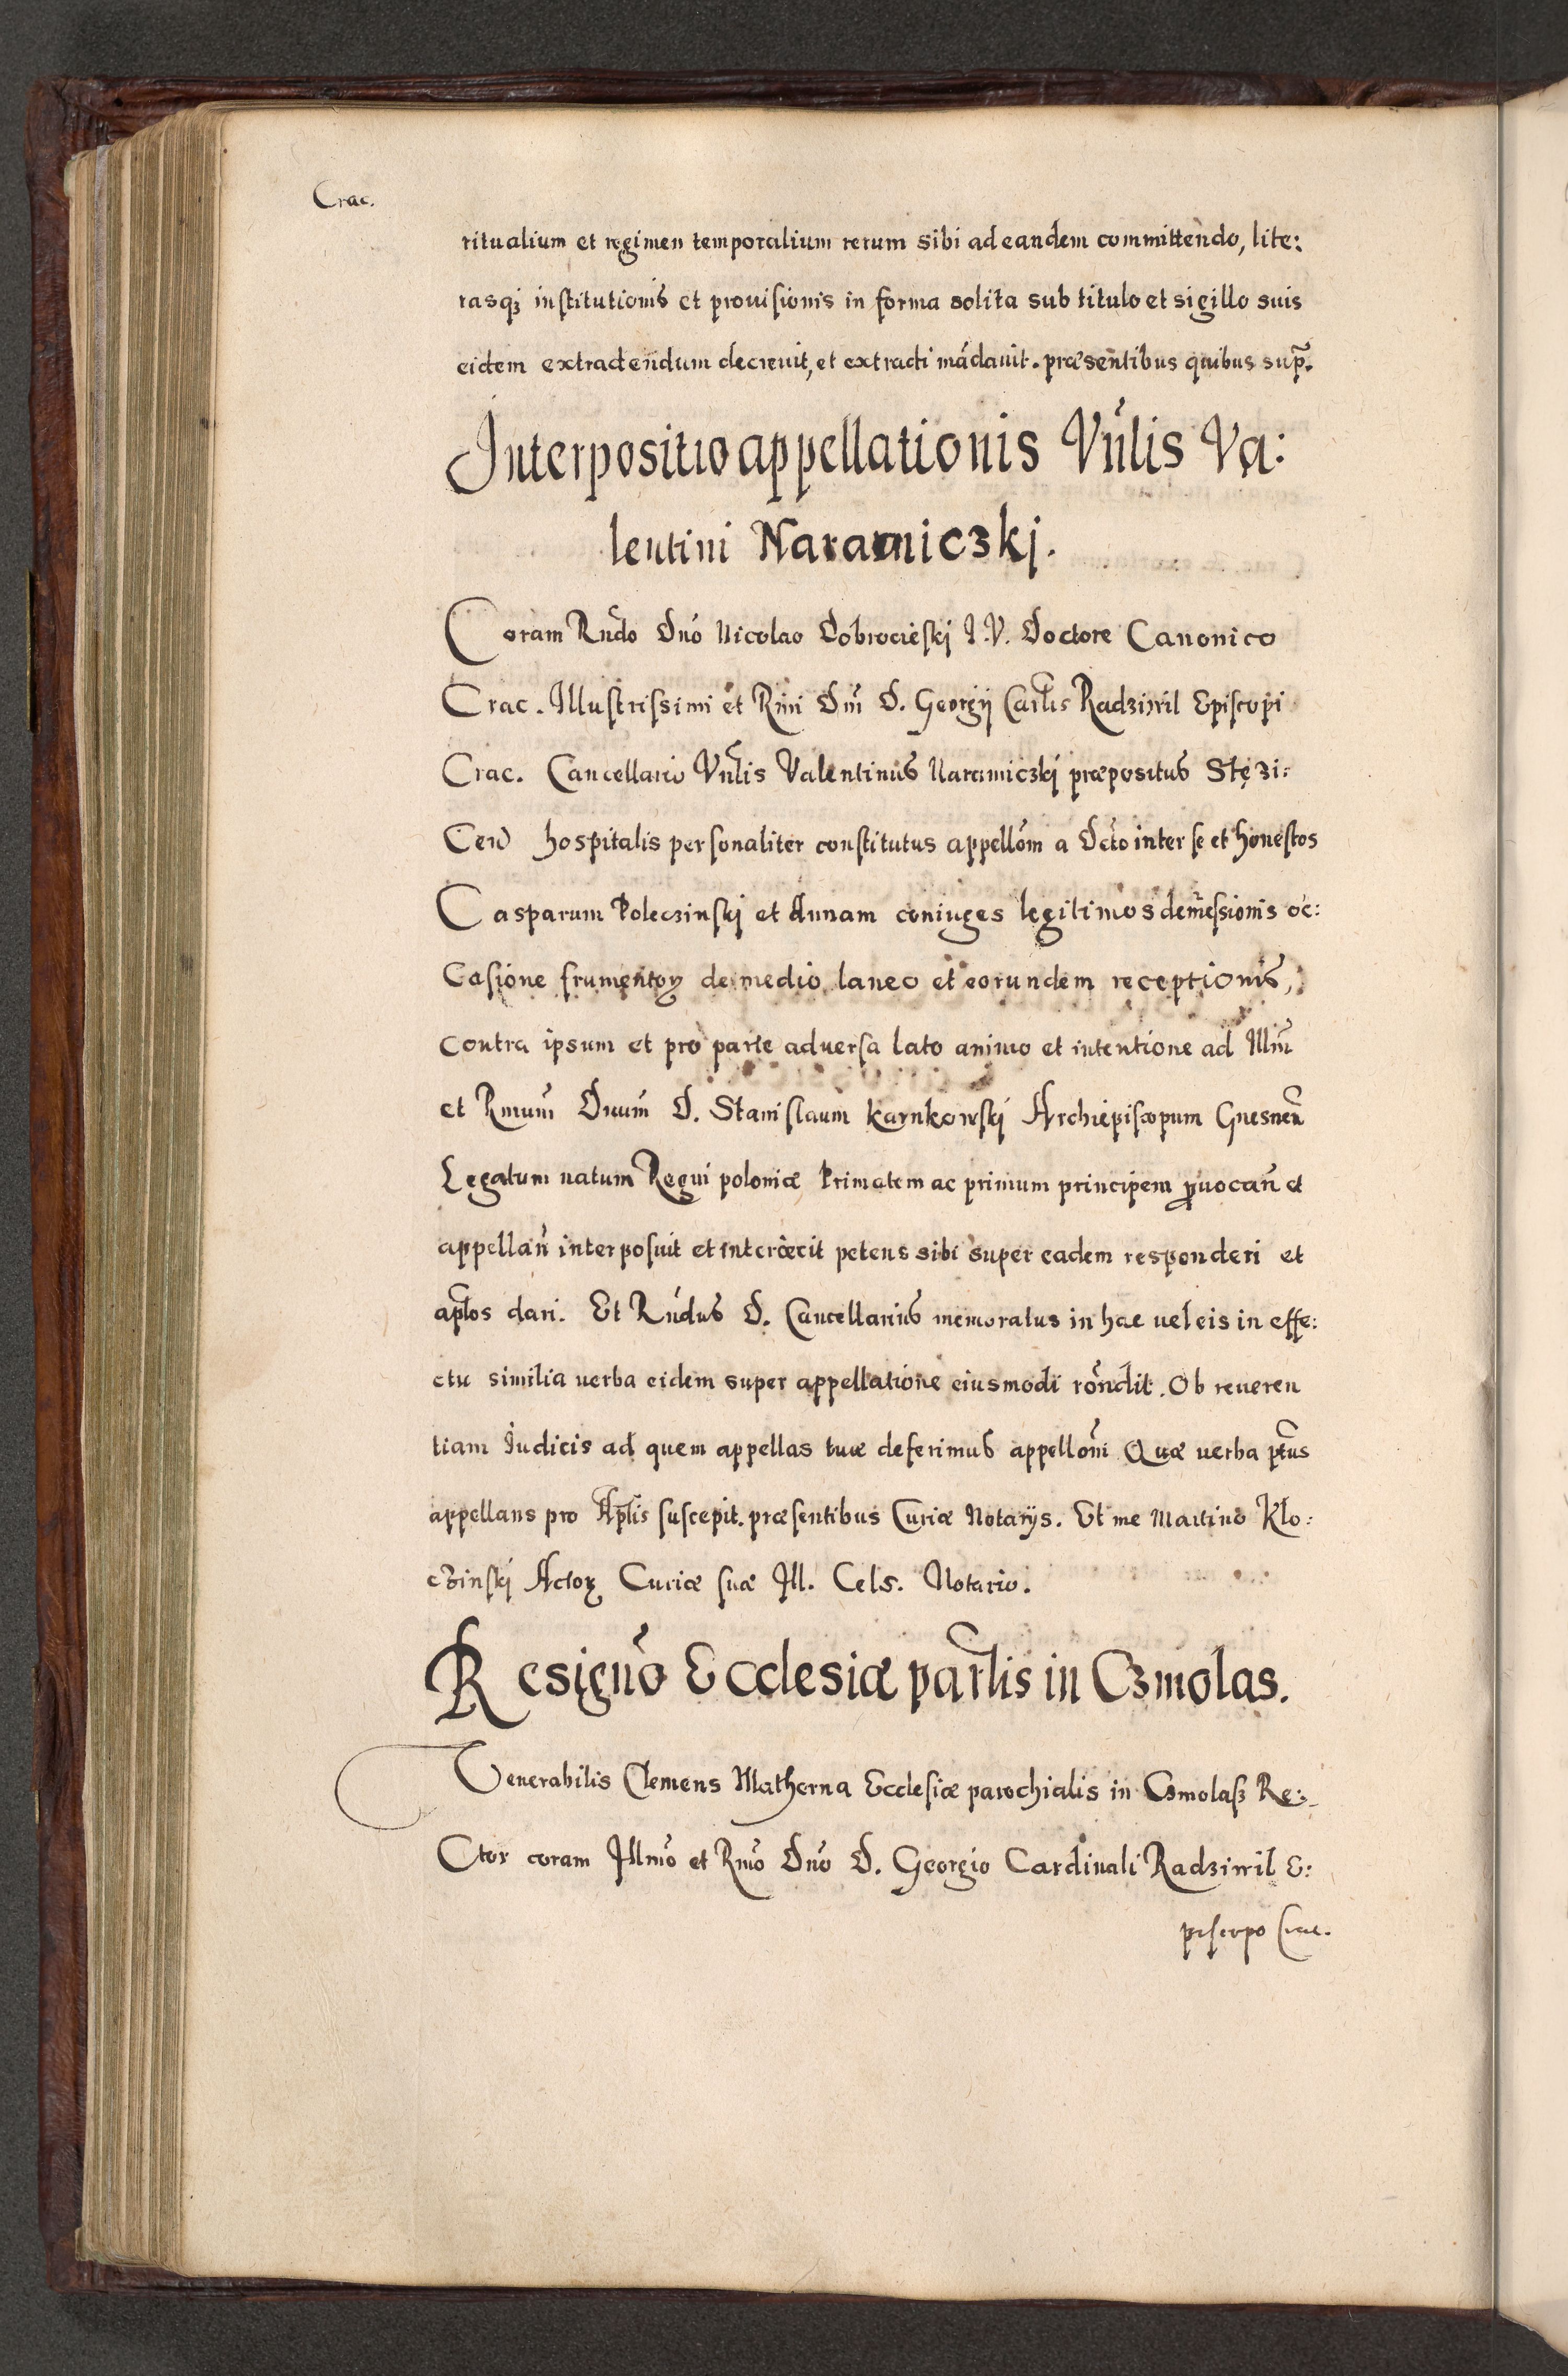 Crac.
ritualium et regimen temporalium rerum sibi ad eandem committendo, lite:
rasq; institutionis et prouisionis in forma solita sub titulo et sigillo suis
eidem extradendum decreuit, et extradi mādauit. præsentibus quibus supr̃.
Interpositio appellationis Vn̄lis Va:
lentini Naramiczkj.
Coram Rn̄do Dnō Nicolao Dobrocieskj I.V. Doctore Canonico
Crac. Illustrissimi et Rm̄i Dn̄i D. Georgij Carlis Radziwil Episcopi
Crac. Cancellario Vn̄lis Valentinus Naramiczkj præpositus Stęzi:
Ceñ hospitalis personaliter constitutus appellōm a Dcto inter se et honestos
Casparum Poleczinskj et Annam coniuges legitimos demēssionis oc:
Casione frumentoꝝ de medio laneo et eorundem receptionis,
contra ipsum et pro parte aduersa lato animo et intentione ad Illm̄
et Rmum̄ Dnum̄ D. Stanislaum Karnkowskj Archiepiscopum Gnesneñ
Legatum natum Regni poloniæ Primatem ac primum principem ꝓuocañ et
appellañ interposuit et interiecit petens sibi super eadem responderi et
aplōs dari. Et Rn̄dus D. Cancellarius memoratus in hæc uel eis in effe:
ctu similia uerba eidem super appellatione eiusmodi rōndit. Ob reueren
tiam Iudicis ad quem appellas tuæ deferimus appellōni Quæ uerba ptūs
appellans pro Aplīs suscepit. præsentibus Curiæ Notarijs. Et me Martino Klo:
czinskj Actoꝝ Curiæ suæ Ill. Cels. Notario.
Resignō Ecclesiæ parlīs in Czmolas.
Venerabilis Clemens Matherna Ecclesiæ parochialis in Czmolasz Re:
Ctor coram Illmō et Rmō Dnō D. Georgio Cardinali Radziwil E:
piscopo Crac.